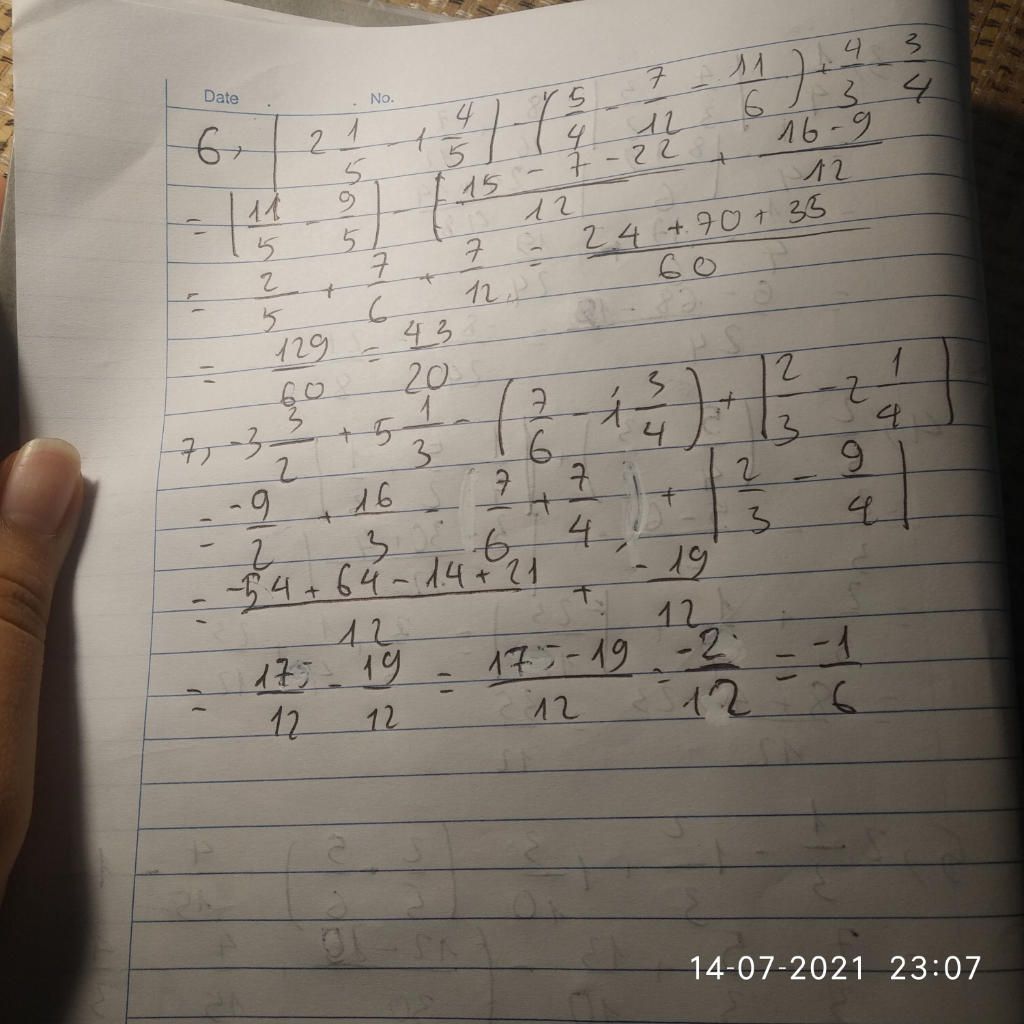 Date . . No.
6, | 2 1/5 - 1 4/5 | - ( 5/4 - 7/12 - 11/6 ) + 4/3 - 3/4
= | 11/5 - 9/5 | - [ (15 - 7 - 22)/12 + (16 - 9)/12
= 2/5 + 7/6 + 7/12 = (24 + 70 + 35)/60
= 129/60 = 43/20
7, -3 3/2 + 5 1/3 - ( 7/6 - 1 3/4 ) + | 2/3 - 2 1/4 |
= -9/2 + 16/3 - 7/6 + 7/4 + | 2/3 - 9/4 |
= (-54 + 64 - 14 + 21)/12 + -19/12
= 17/12 - 19/12 = (17 - 19)/12 = -2/12 = -1/6
14-07-2021 23:07